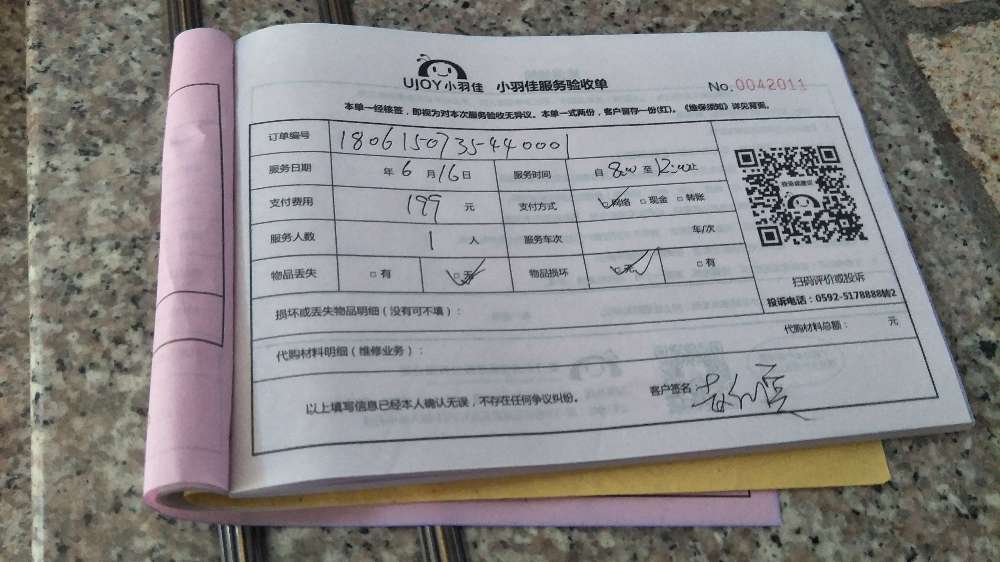 UJOY小羽佳 小羽佳服务验收单 No.0042011
本单一经核签，即视为对本次服务验收无异议。本单一式两份，客户留存一份(红)。《维保须知》详见背面。
订单编号 1806150735440001
服务日期 年 6 月 16 日 服务时间 自 8:00 至 12:00止
支付费用 199 元 支付方式 □网络 □现金 □转账
服务人数 1 人 服务车次 车/次
物品丢失 □有 □无 物品损坏 □无 □有
扫码评价或投诉
投诉电话：0592-5178888转2
损坏或丢失物品明细（没有可不填）：
代购材料明细（维修业务）： 代购材料总额： 元
以上填写信息已经本人确认无误，不存在任何争议纠纷。 客户签名